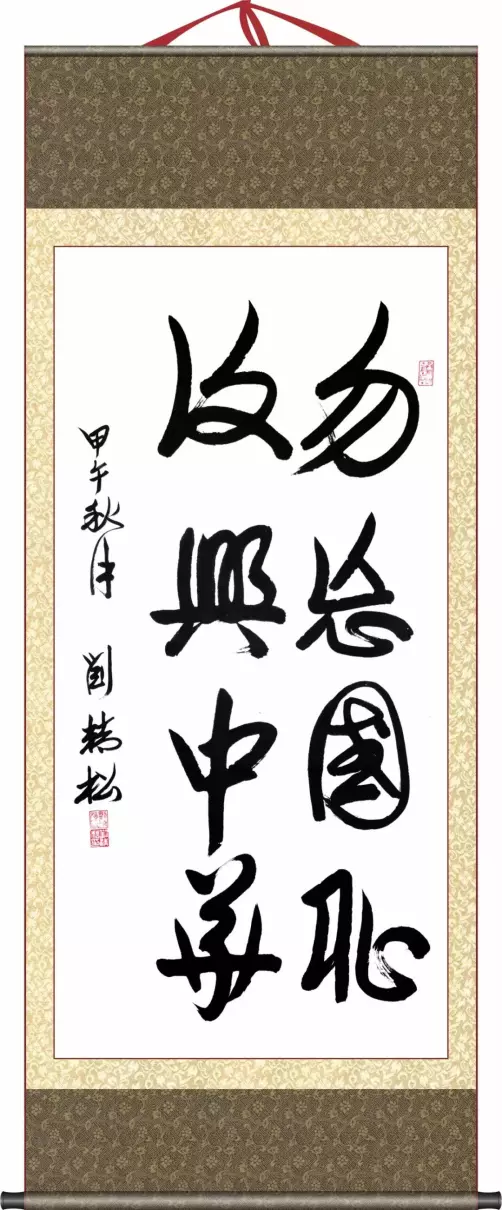 勿忘國恥
復興中華
甲午秋月 劉精松